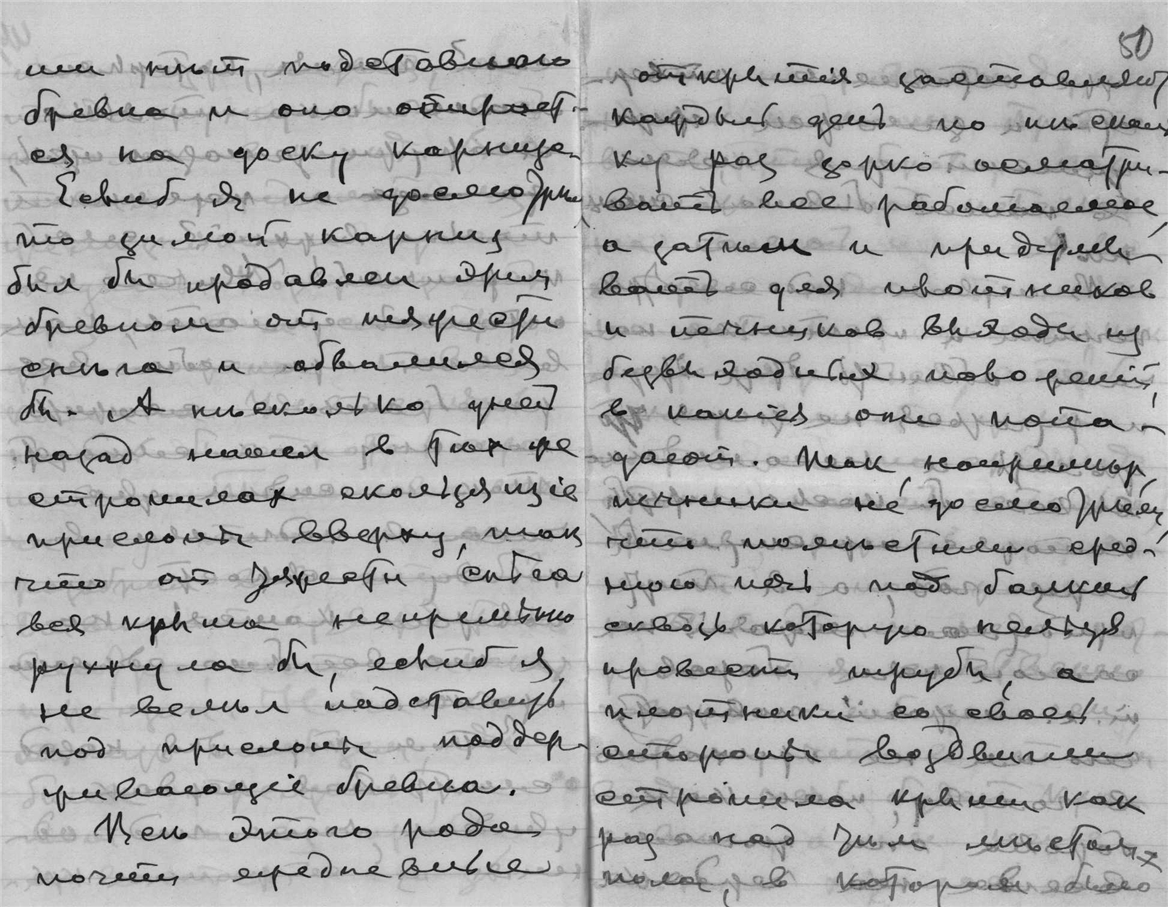 ши нѣт подставного
бревна и оно опирает-
ся на доску карниза.
Еслиб я не досмотрил
то зимой карниз
был бы продавлен этим
бревном от тяжести
снѣга и обвалился
бы. А нѣсколько дней
назад нашел в тѣх же
стропилах скользящіе
прислоны вверху, так
что от тяжести снѣга
вся крыша непремѣнно
рухнула бы, еслиб я
не велѣл подставить
под прислоны поддер-
живающіе бревна.
Вещи этого рода
почти ежедневные
50
открытія заставляют
каждый день по нѣсколь-
ку раз зорко осматри-
вать все работаемое
а затѣм и придумы-
вать для плотников
и печников выходы из
безвыходных поведеній,
в какія они попа-
дают. Так напримѣр,
печники не досмотрѣли
что помѣстили сред-
нюю печь под балкой
сквозь которую нельзя
провести трубы, а
плотники со своей
стороны воздвигли
стропила крыши как
раз над тѣм мѣстом
пола, в котором было